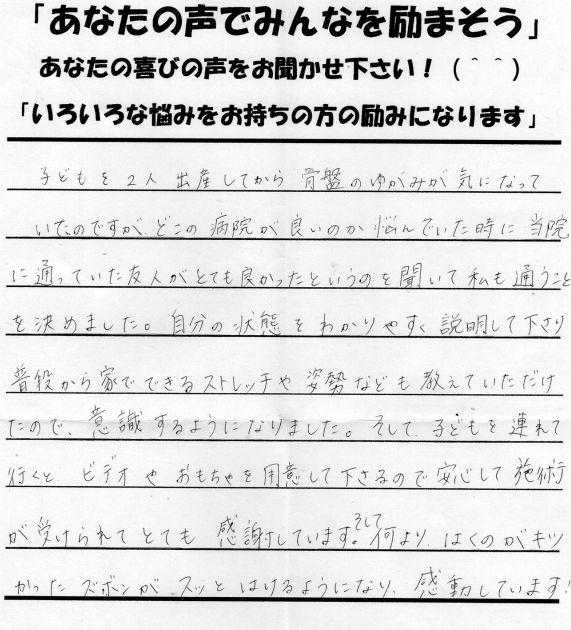 「あなたの声でみんなを励まそう」
あなたの喜びの声をお聞かせ下さい！（＾＾）
「いろいろな悩みをお持ちの方の励みになります」
子どもを2人出産してから骨盤のゆがみが気になって
いたのですが、どこの病院が良いのか悩んでいた時に当院
に通っていた友人がとても良かったというのを聞いて私も通うこと
を決めました。自分の状態をわかりやすく説明して下さり
普段から家でできるストレッチや姿勢なども教えていただけ
たので、意識するようになりました。そして、子どもを連れて
行くと、ビデオやおもちゃを用意して下さるので安心して施術
が受けられてとても感謝しています。そして何より、はくのがキツ
かったズボンがスッとはけるようになり、感動しています！